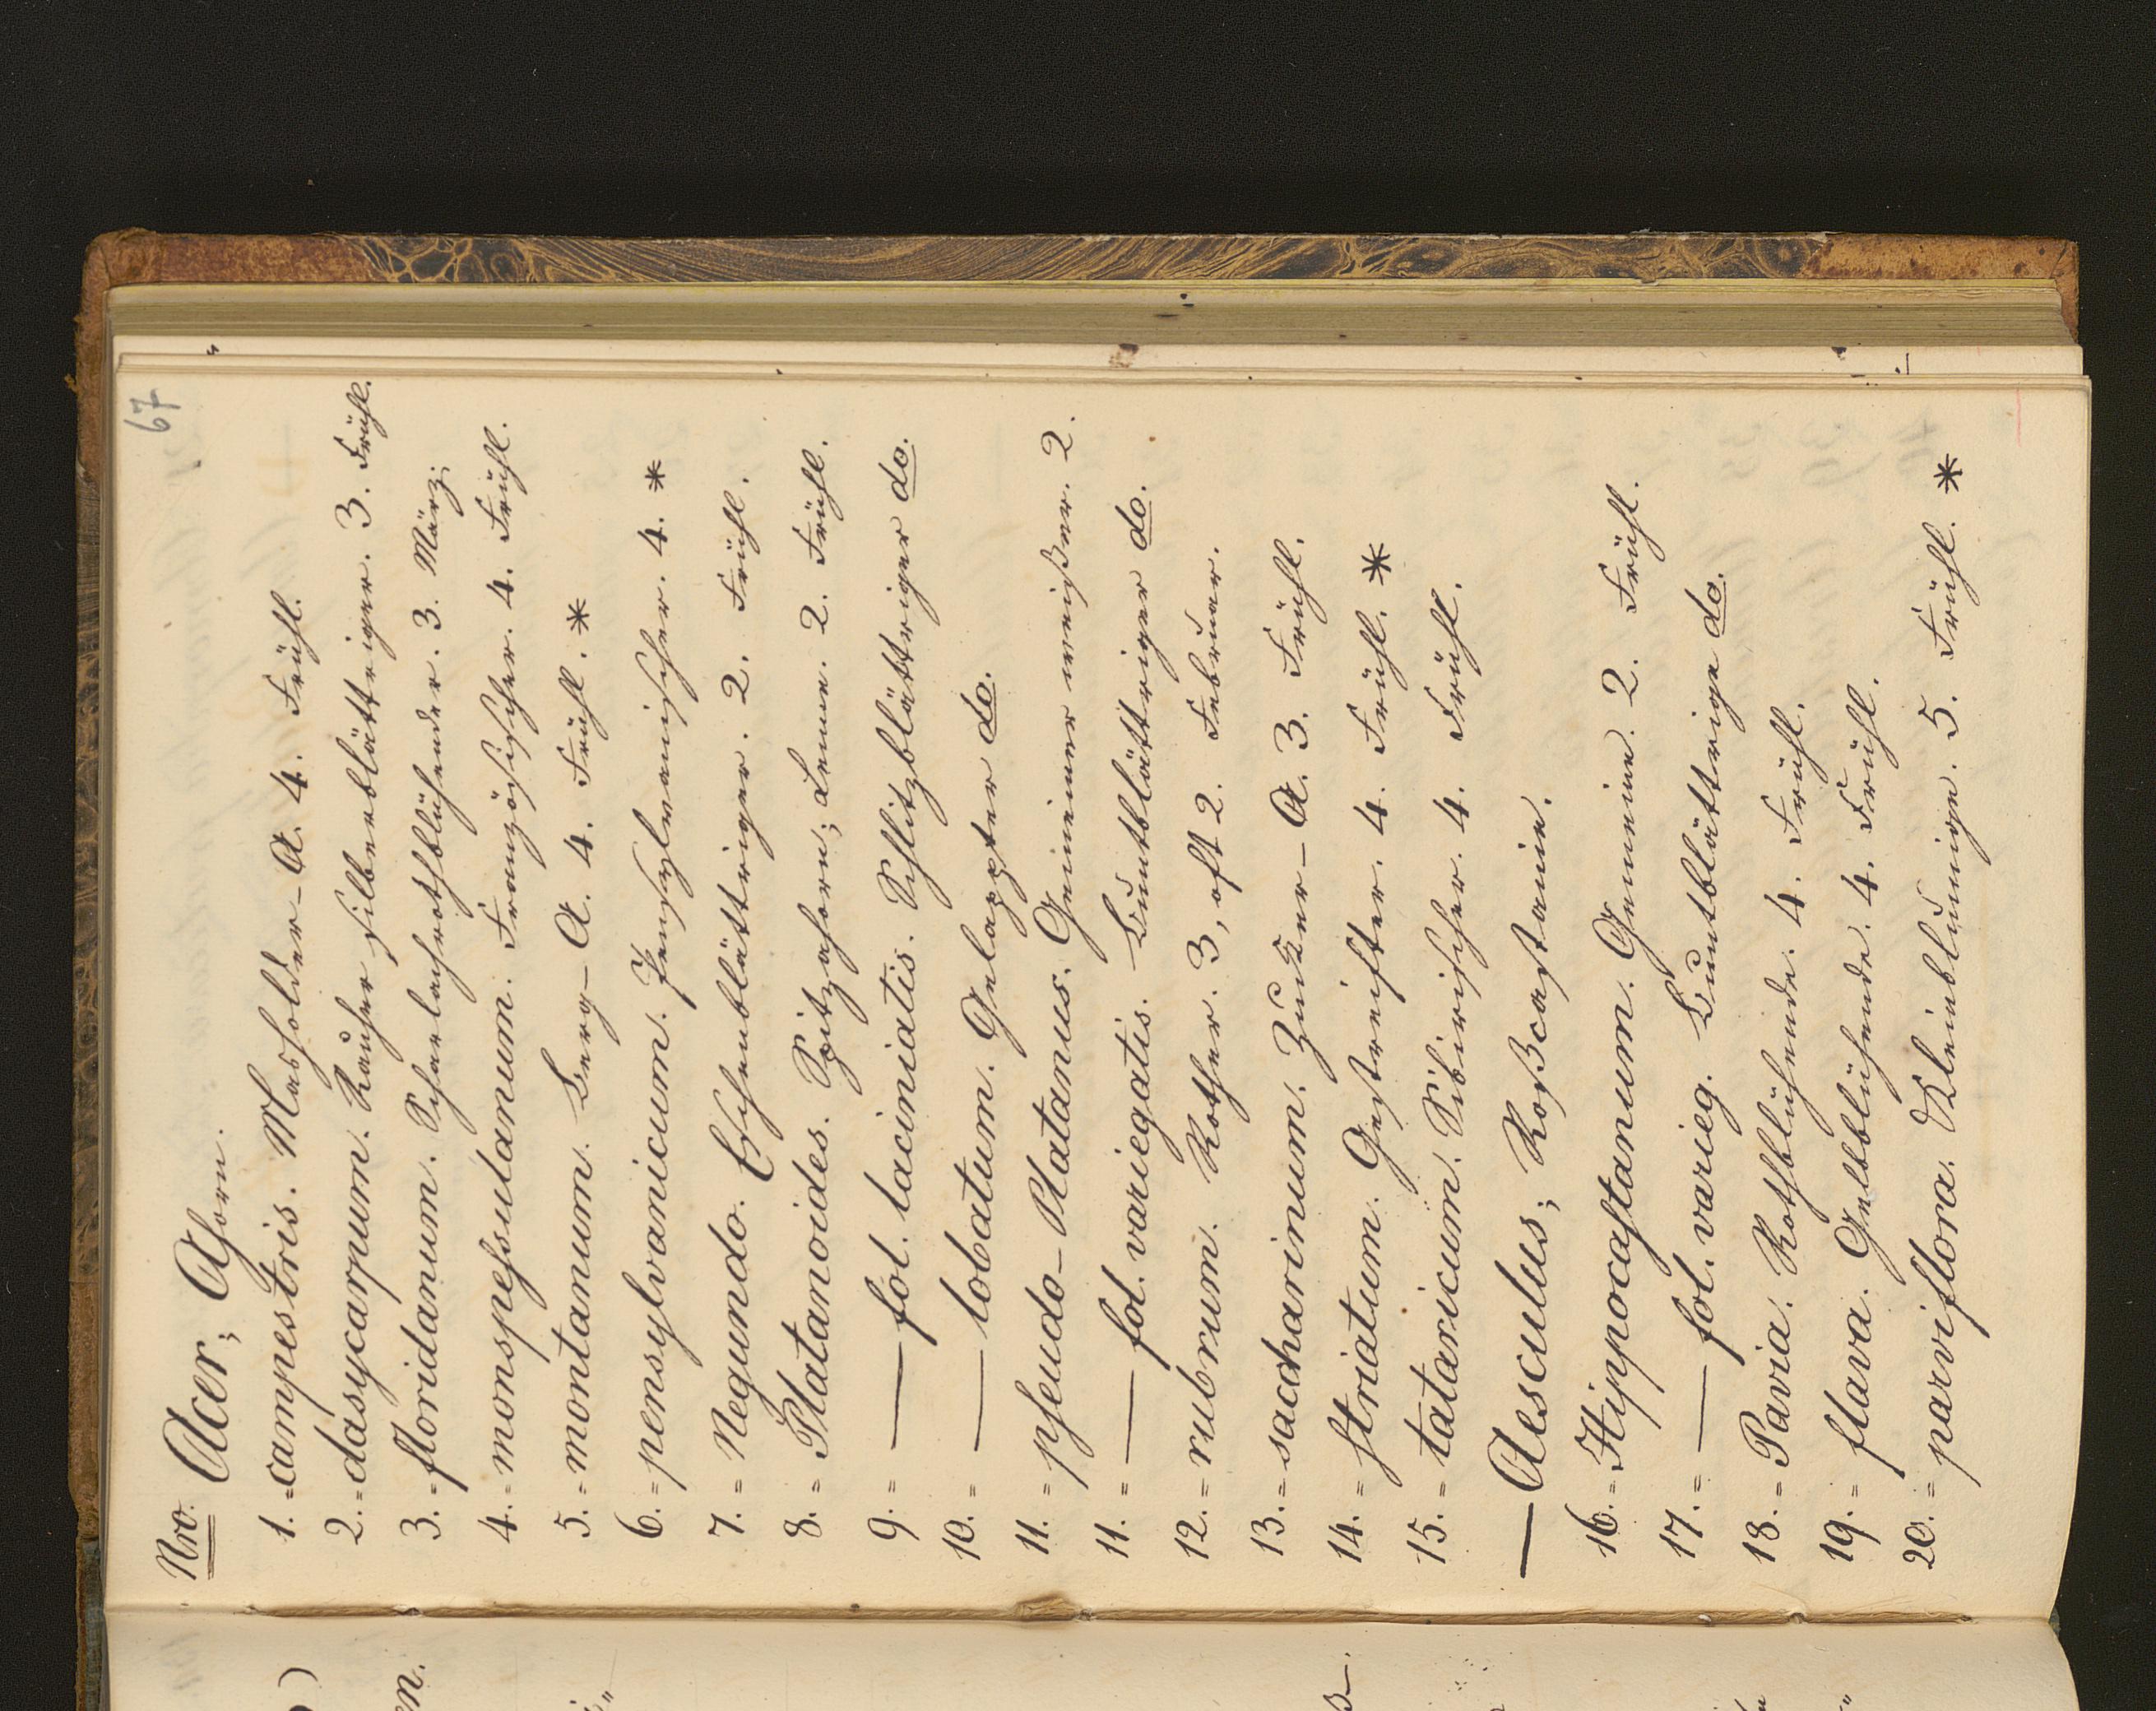 67
Nro. Acer; Ahorn.
1. = campestris. Masholder-A. 4. Frühl.
2. = dasycarpum. Rauher silberblättriger. 3. Frühl.
3. = floridanum. Scharlachrothblühender. 3. März.
4. = monspessulanum. Französischer. 4. Frühl.
5. = montanum. Berg-A. 4. Frühl. *
6. = pensylvanicum. Pensylvanischer. 4. *
7. = Negundo. Eschenblättriger. 2. Frühl.
8. = Platanoides. Spitzahorn; Lenne. 2. Frühl.
9. = — fol. laciniatis. Schlitzblättriger do.
10. = — lobatum. Gelappter do.
11. = pseudo-Platanus. Gemeiner weißer. 2.
11. = — fol. variegatis. Buntblättriger do.
12. = rubrum. Rother. 3, oft 2. Februar.
13. = saccharinum. Zucker-A. 3. Frühl.
14. = striatum. Gestreifter. 4. Frühl. *
15. = tataricum. Sibirischer. 4. Frühl.
— Aesculus; Roßcastanie.
16. = Hippocastanum. Gemeine. 2. Frühl.
17. = — fol. varieg. Buntblättrige do.
18. = Pavia. Rothblühende. 4. Frühl.
19. = flava. Gelbblühende. 4. Frühl.
20. = parviflora. Kleinblumige. 5. Frühl. *